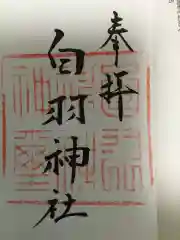 奉拝
白羽神社